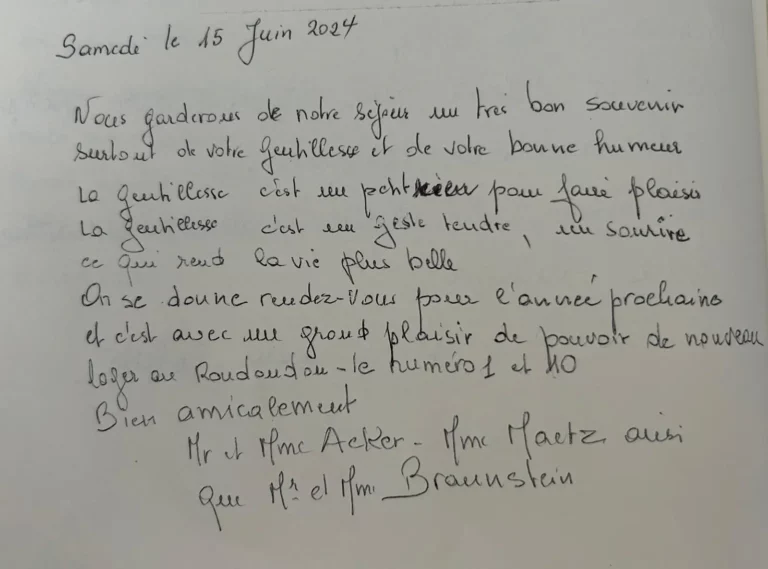 Samedi le 15 Juin 2024
Nous garderons de notre séjour un tres bon souvenir
surtout de votre gentillesse et de votre bonne humeur
La gentillesse c'est un petit rien pour faire plaisir
La gentillesse c'est un geste tendre, un sourire
ce qui rend la vie plus belle
On se donne rendez-vous pour l'année prochaine
et c'est avec un grand plaisir de pouvoir de nouveau
loger au Roudoudou - le numéro 1 et 10
Bien amicalement
Mr et Mme Acker - Mme Maetz ausi
que Mr et Mme Braunstein